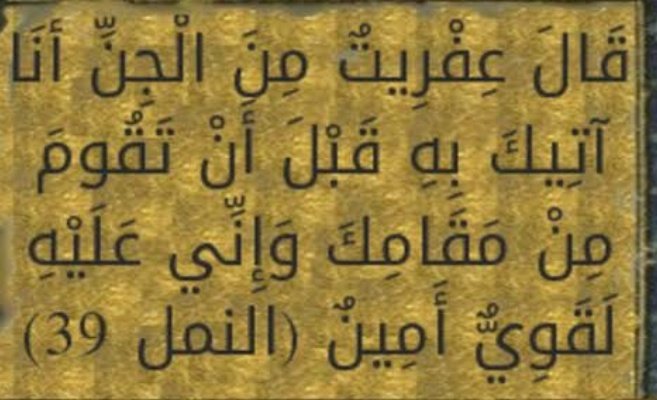 قَالَ عِفْرِيتٌ مِنَ الْجِنِّ أَنَا
آتِيكَ بِهِ قَبْلَ أَنْ تَقُومَ
مِنْ مَقَامِكَ وَإِنِّي عَلَيْهِ
لَقَوِيٌّ أَمِينٌ (النمل 39)